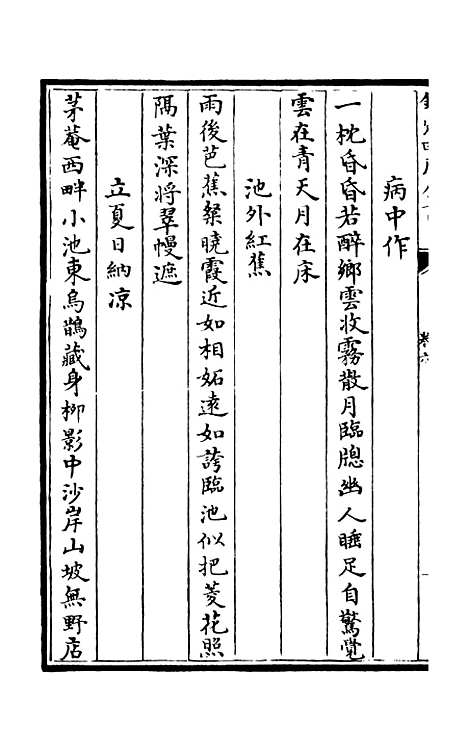 病中作
一枕昏昏若醉鄉雲收霧散月臨牎幽人睡足自驚覺
雲在青天月在床
池外紅蕉
雨後芭蕉粲曉霞近如相妬遠如誇臨池似把菱花照
隔葉深將翠幔遮
立夏日納凉
茅菴西畔小池東烏鵲藏身栁影中沙岸山坡無野店